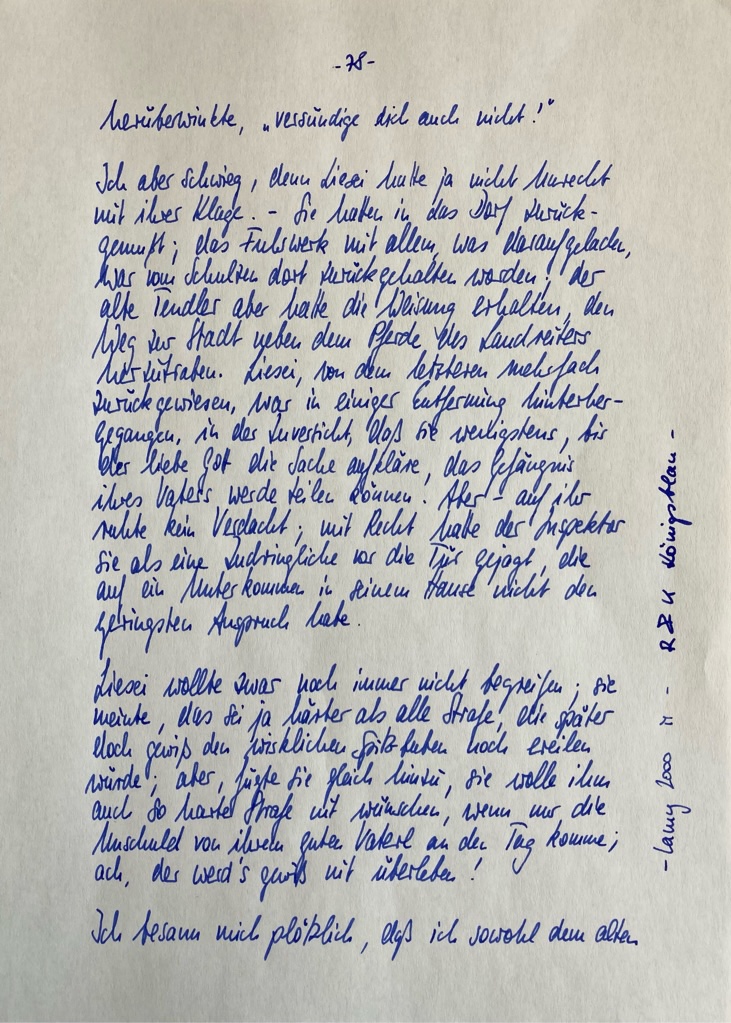 -78-
herüberwinkte, „versündige dich auch nicht!"
Ich aber schwieg, denn Liesei hatte ja nicht Unrecht
mit ihrer Klage. - Sie hatten in das Dorf zurück-
gemußt; das Fuhrwerk mit allem, was daraufgeladen,
war vom Schulzen dort zurückgehalten worden; der
alte Tendler aber hatte die Weisung erhalten, den
Weg zur Stadt neben dem Pferde des Landreiters
herzutraben. Liesei, von dem letzteren mehrfach
zurückgewiesen, war in einiger Entfernung hinterher-
gegangen, in der Zuversicht, daß sie wenigstens, bis
der liebe Gott die Sache aufkläre, das Gefängnis
ihres Vaters werde teilen können. Aber - auf ihr
ruhte kein Verdacht; mit Recht hatte der Inspektor
sie als eine Zudringliche vor die Tür gejagt, die
auf ein Unterkommen in seinem Hause nicht den
geringsten Anspruch habe.
Liesei wollte zwar noch immer nicht begreifen; sie
meinte, das sei ja härter als alle Strafe, die später
doch gewiß den wirklichen Spitzbuben noch ereilen
würde; aber, fügte sie gleich hinzu, sie wolle ihm
auch so harte Strafe nit wünschen, wenn nur die
Unschuld von ihrem guten Vaterl an den Tag komme;
ach, der werd's gwiß nit überleben!
Ich besann mich plötzlich, daß ich sowohl dem alten
-Lamy 2000 M - R&K Königsblau-